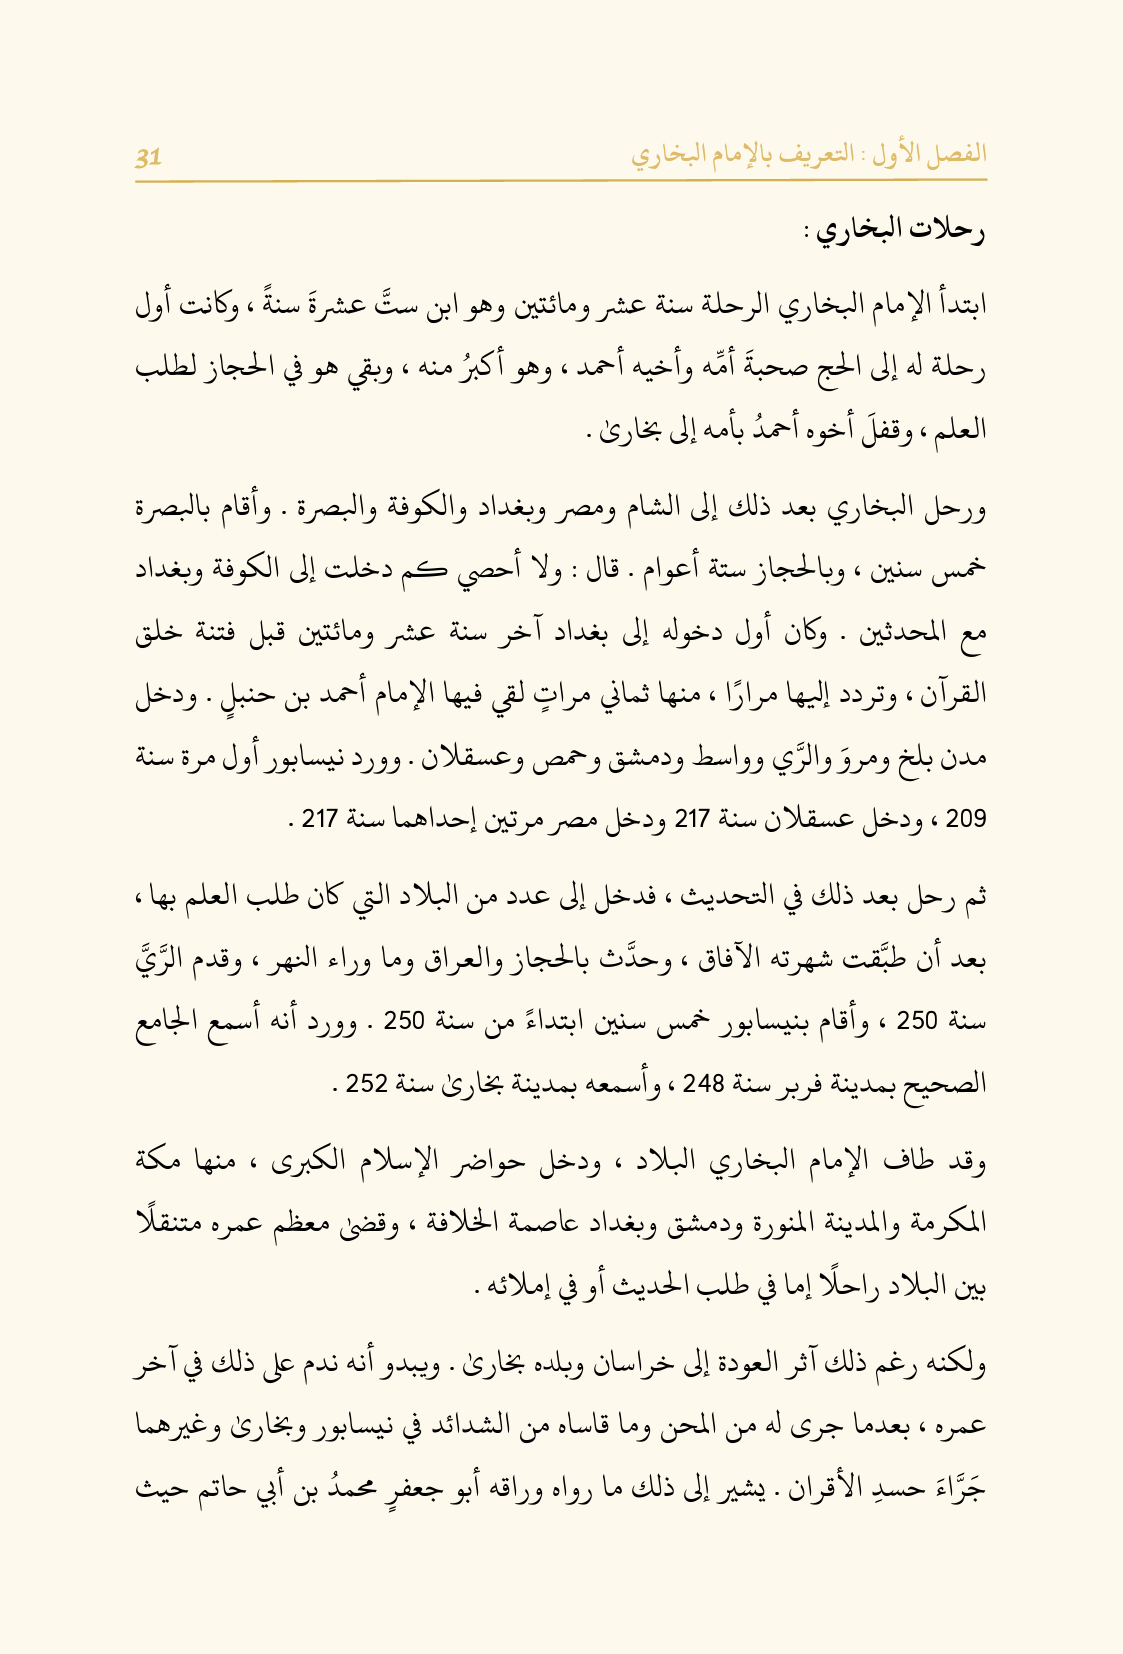 الفصل الأول : التعريف بالإمام البخاري 31
رحلات البخاري :
ابتدأ الإمام البخاري الرحلة سنة عشر ومائتين وهو ابن ستَّ عشرةَ سنةً ، وكانت أول
رحلة له إلى الحج صحبةَ أمِّه وأخيه أحمد ، وهو أكبرُ منه ، وبقي هو في الحجاز لطلب
العلم ، وقفلَ أخوه أحمدُ بأمه إلى بخارىٰ .
ورحل البخاري بعد ذلك إلى الشام ومصر وبغداد والكوفة والبصرة . وأقام بالبصرة
خمس سنين ، وبالحجاز ستة أعوام . قال : ولا أحصي كم دخلت إلى الكوفة وبغداد
مع المحدثين . وكان أول دخوله إلى بغداد آخر سنة عشر ومائتين قبل فتنة خلق
القرآن ، وتردد إليها مرارًا ، منها ثماني مراتٍ لقي فيها الإمام أحمد بن حنبلٍ . ودخل
مدن بلخ ومروَ والرَّي وواسط ودمشق وحمص وعسقلان . وورد نيسابور أول مرة سنة
209 ، ودخل عسقلان سنة 217 ودخل مصر مرتين إحداهما سنة 217 .
ثم رحل بعد ذلك في التحديث ، فدخل إلى عدد من البلاد التي كان طلب العلم بها ،
بعد أن طبَّقت شهرته الآفاق ، وحدَّث بالحجاز والعراق وما وراء النهر ، وقدم الرَّيَّ
سنة 250 ، وأقام بنيسابور خمس سنين ابتداءً من سنة 250 . وورد أنه أسمع الجامع
الصحيح بمدينة فربر سنة 248 ، وأسمعه بمدينة بخارىٰ سنة 252 .
وقد طاف الإمام البخاري البلاد ، ودخل حواضر الإسلام الكبرى ، منها مكة
المكرمة والمدينة المنورة ودمشق وبغداد عاصمة الخلافة ، وقضىٰ معظم عمره متنقلًا
بين البلاد راحلًا إما في طلب الحديث أو في إملائه .
ولكنه رغم ذلك آثر العودة إلى خراسان وبلده بخارىٰ . ويبدو أنه ندم على ذلك في آخر
عمره ، بعدما جرى له من المحن وما قاساه من الشدائد في نيسابور وبخارىٰ وغيرهما
جَرَّاءَ حسدِ الأقران . يشير إلى ذلك ما رواه وراقه أبو جعفرٍ محمدُ بن أبي حاتم حيث